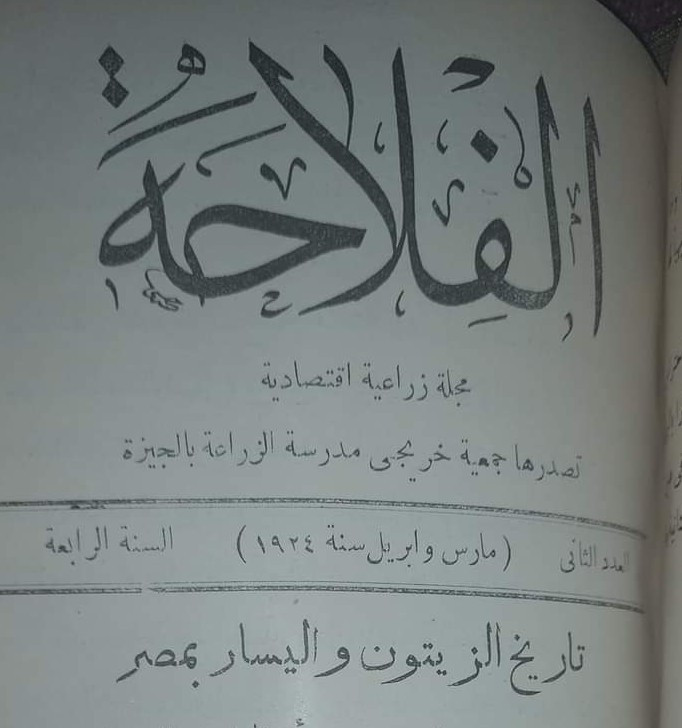 الفلاحة
مجلة زراعية اقتصادية
تصدرها جمعية خريجى مدرسة الزراعة بالجيزة
العدد الثانى (مارس وابريل سنة ١٩٢٤) السنة الرابعة
تاريخ الزيتون واليسار بمصر